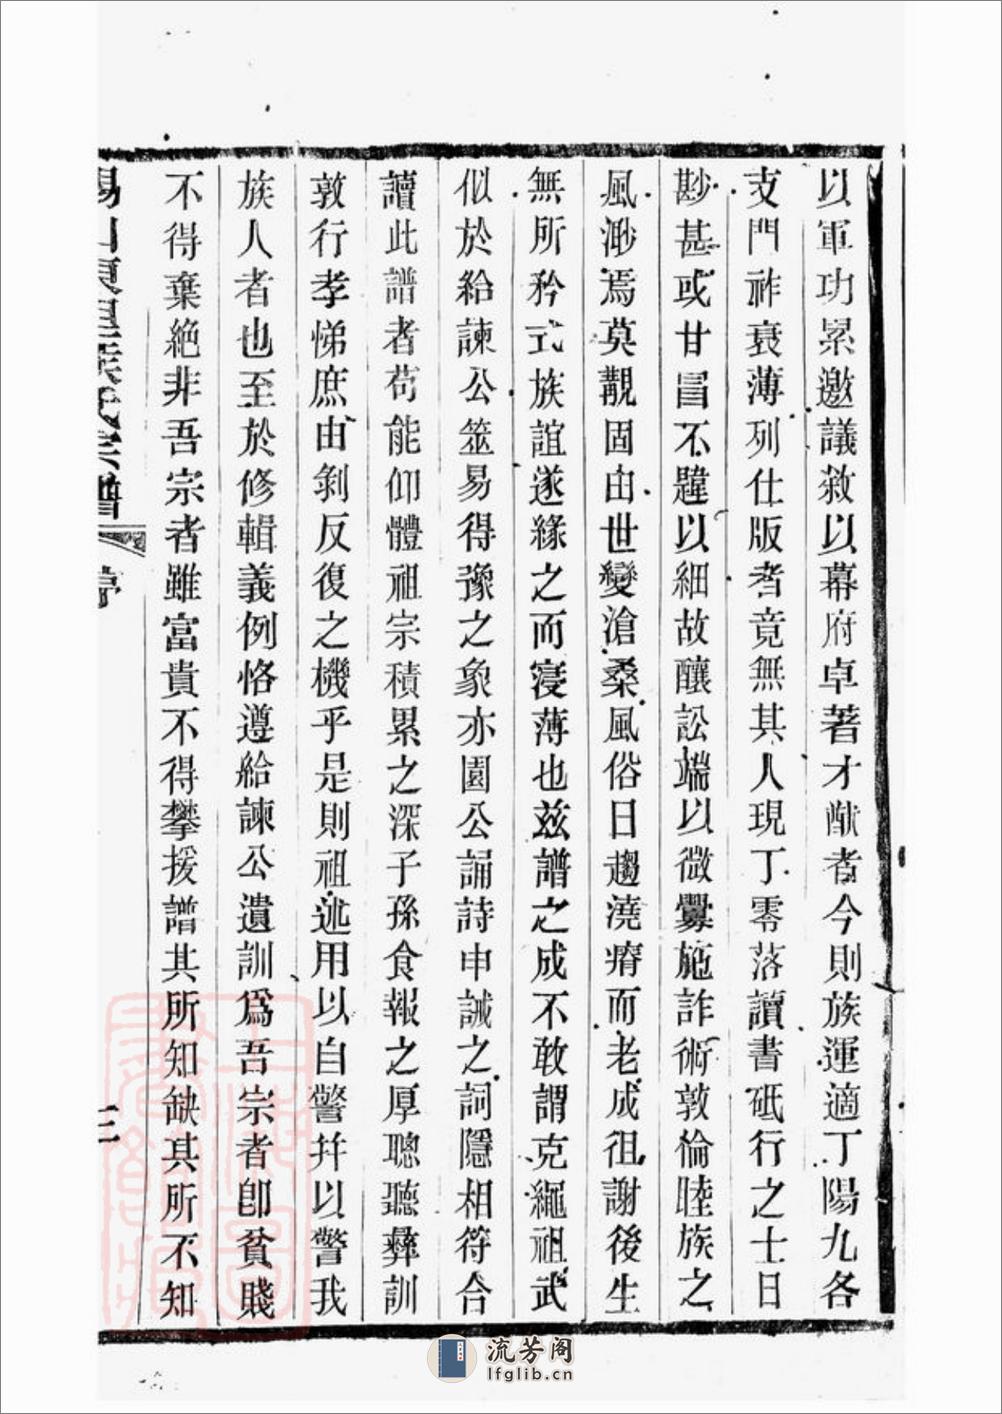 以軍功累邀議敘以幕府卓著才猷者今則族運適丁陽九各
支門祚衰薄列仕版者竟無其人現丁零落讀書砥行之士日
尠甚或甘冒不韙以細故釀訟端以微釁施詐術敦倫睦族之
風渺焉莫覯固由世變滄桑風俗日趨澆瘠而老成徂謝後生
無所矜式族誼遂緣之而寖薄也茲譜之成不敢謂克繩祖武
似於給諫公筮易得豫之象亦園公誦詩申誡之詞隱相符合
讀此譜者苟能仰體祖宗積累之深子孫食報之厚聰聽彝訓
敦行孝悌庶由剝反復之機乎是則祖述用以自警幷以警我
族人者也至於修輯義例恪遵給諫公遺訓爲吾宗者卽貧賤
不得棄絕非吾宗者雖富貴不得攀援譜其所知缺其所不知
氏宗譜
序
三
流芳阁
lfglib.cn